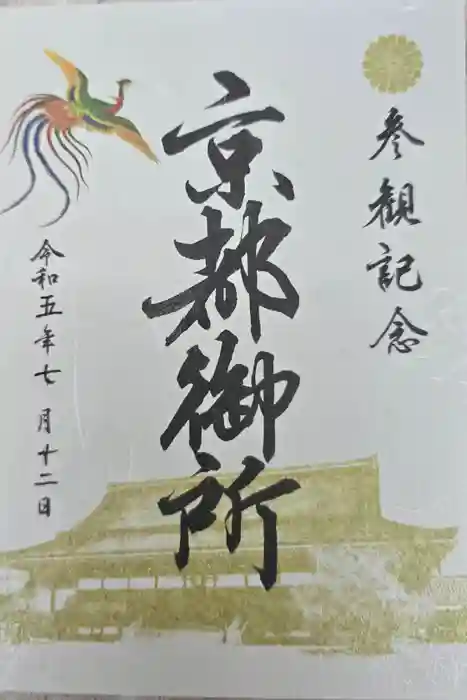 参観記念
京都御所
令和五年七月十二日